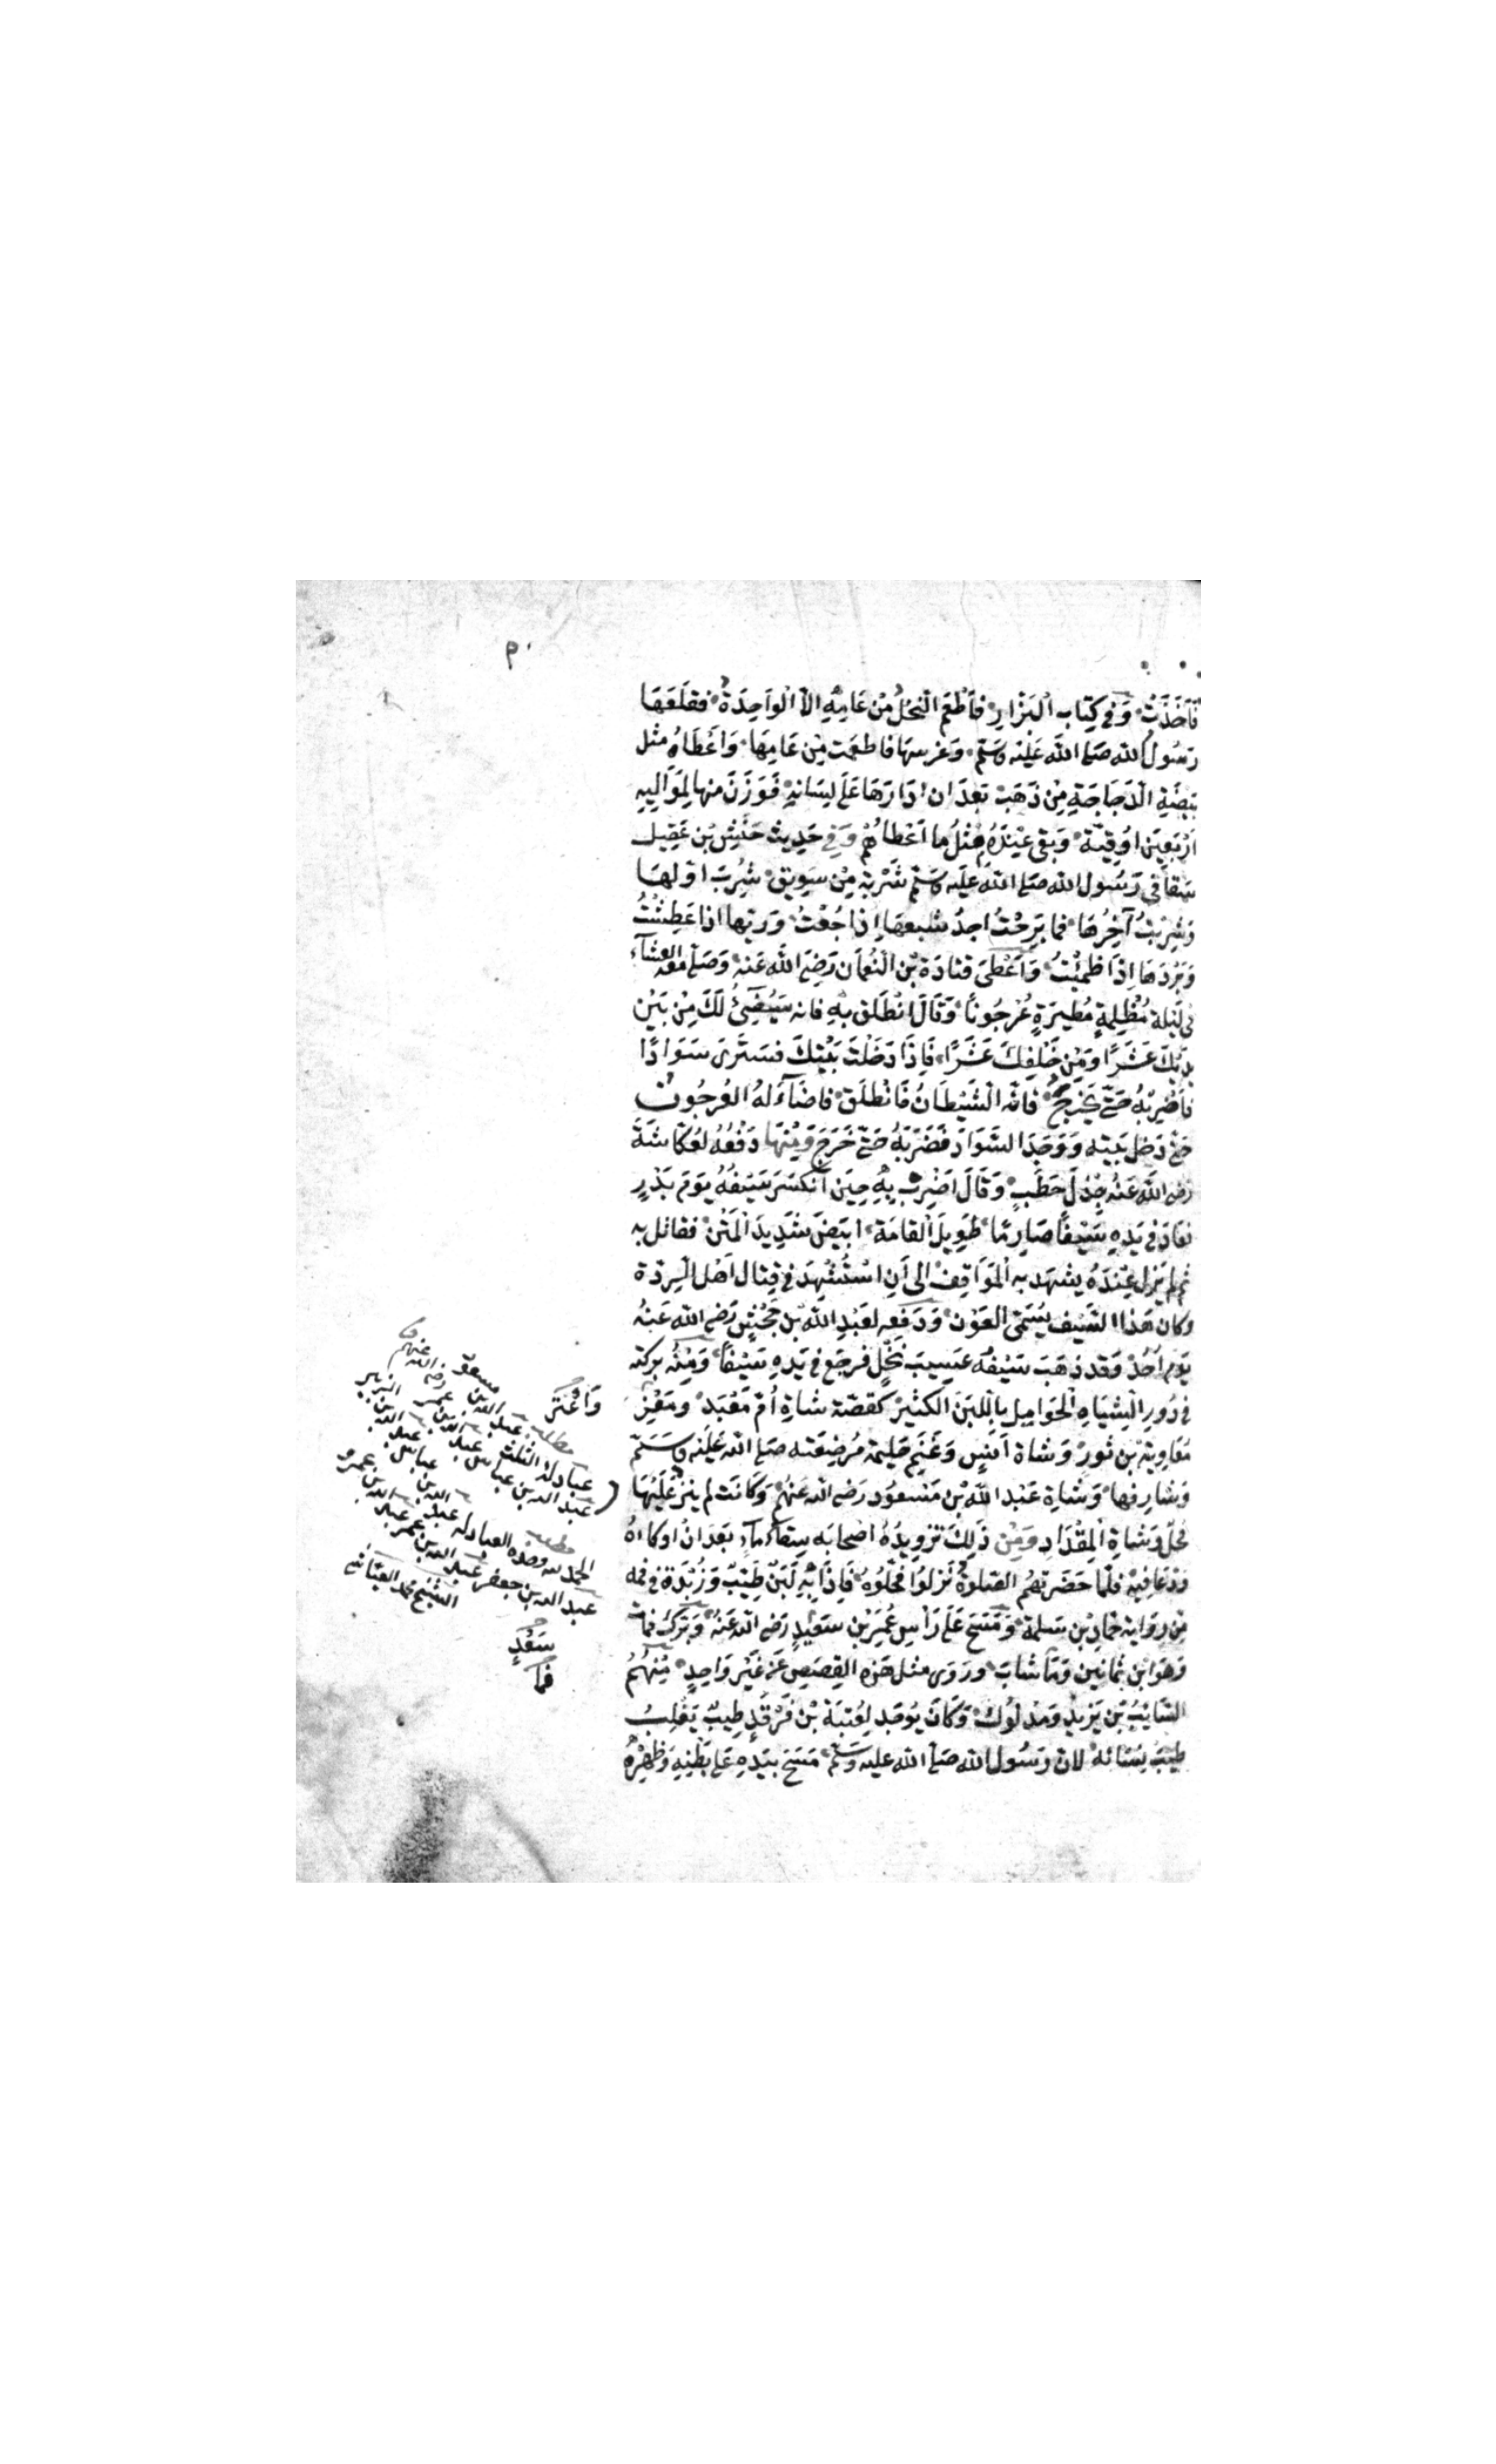 فَأَخَذَتْ وَفِي كِتَابِ الْبَزَّارِ فَأَطْعَمَ النَّخْلُ مِنْ عَامِهِ الاَّ الْوَاحِدَةُ فَقَلَعَهَا
رَسُولُ الله صَلى الله عَلَيْه وسَلّم وَغرسهَا فاطعمت مِنْ عَامِهَا وَاَعْطَاهُ مثل
بَيْضَةِ الدَّجَاجَةِ مِنْ ذَهَبْ بَعدَ ان ادَارَهَا عَلَى لِسَانِهِ فَوَزَنَ منها لِمَوَالِيهِ
اَرْبَعِينَ اُوقِيَّة وَبَقِيَ عِنْدَهُ مِثلُ ما اَعْطاهُمْ وَفِي حَدِيثِ حَنَشِ بْنِ عَقِيل
سَقَانِي رَسُول الله صَلى اللهُ عَليْه وسَلّم شَرْبَة مِنْ سَوِيقٍ شَرِبَ اوَّلهَا
وَشَرِبْتُ آخِرُهَا فما بَرِحْتُ اجدُ شِبَعهَا إذا جُعْتُ وَرِيّها اذا عَطِشْتُ
وَبَرْدَهَا اِذَا ظَمِئْتُ وَاَعْطَى قتَادَة بْن النُّعْمَان رَضِيَ اللهُ عَنه وَصَلى معَه العِشَآءَ
فِي لَيْلَة مُظْلِمَةٍ مُطِيرَةٍ عُرْجُونًا وَقَالَ انْطَلَق بِهِ فَانه سَيُضِيئُ لَكَ مِنْ بَيْنِ
يَدَيْكَ عَشَرًا وَمِنْ خَلْفِكَ عَشَرًا فَاِذَا دَخَلْتَ بَيْتِكَ فَسَتَرَى سَوَادًا
فَاضْرِبْهُ حَتَّى يَخْرُجَ فَانَّه الشَّيْطَانُ فَانْطَلَقَ فَاضَآءَ لهُ العُرجُون
حَتَّى دَخَلَ بَيْته وَوَجَدَ السَّوَادَ فَضَرَبَهُ حَتَّى خَرَجَ وَمِنْهَا دَفْعُهُ لعُكَّاشَةَ
رضي اللهُ عَنْهُ جِذْلَ حَطَبٍ وَقَالَ اضْرِبْ بِهِ حِينَ انْكَسَرَ سَيْفُهُ يَوْمَ بَدْرٍ
فعَادَ فِي يَدِهِ سَيْفًا صَارِمًا طَوِيلَ القامَة ابيَضَ شَدِيدَ الْمَتْن فَقاتل به
ثم لم يَزل عِنْدَهُ يشهَد به الْمَوَاقِفَ الى اَنِ اسْتُشْهِدَ فِي قِتَال اَهْل الرِّدة
وكان هَذا السَّيْف يُسَمّى العَوْن وَدَفعه لعَبْدِ اللهِ بْن جَحْش رَضي الله عَنهُ
يَوم اُحُد وَقد ذهَبَ سَيْفه عَسِيبَ نَخْلٍ فرجَع في يَدِهِ سَيْفًا وَمِنْه بركته
فِي دُرُورِ الشِّيَاهِ الْحَوَامِل بِاللَّبَنَ الكَثِيرْ كَقصَّة شاةِ اُم مَعْبَدْ وَاعْنُزِ
مُعَاوِيَة بْن ثورٍ وَشاة اَنَسٍ وَغَنَمِ حَلِيمَة مُرْضِعَتِه صَلى الله عَليْه وسَلّم
وَشَارِفها وَشَاةِ عَبْد الله بْن مَسْعُود رَضي الله عَنهُم وَكَانَت لم يَنْزُ عَلَيْهَا
فَحْلٌ وَشَاة الْمِقْدَادِ وَمِنْ ذَلِكَ تَزْوِيدُهُ اصْحابَه سِقَآءَ مآءٍ بعدَ انْ اوكاهُ
وَدَعَا فِيهِ فَلَمّا حَضَرَتهُم الصَّلوةُ نَزلوا فَحَلّوهُ فَاِذَا بِهِ لَبَنٌ طَيِّبٌ وَزُبْدَة في فمه
مِنْ رِوَاية حَمّادِ بْن سَلمة وَمَسَحَ عَلَى رَأسِ عُمَيْر بْن سَعِيدٍ رَضي الله عَنهُ وَبَرَّكَ فمات
وَهوَ ابن ثمَانِين وَمَا شابَ وروى مثل هَذِه القِصَصِ عَن غَيْرِ وَاحِدٍ مِنْهُمُ
السَّايِبُ بْن يَزِيد وَمدْلُوك وَكَانَ يُوجَد لِعُتبَة بْن فَرْقَدٍ طِيبٌ يَغْلِبُ
طِيبَ نِسَائه لان رَسُول الله صَلى الله عليه وسَلّم مَسَحَ بِيَدِهِ عَلَى بَطْنِهِ وَظَهْرِهِ
وَاعْنُزِ
عبادلة الثلث عبد الله بن مسعود رضي الله عنهم
عبد الله بن عباس عبد الله بن عمر
الحمد لله وحده العبادلة عبد الله بن عباس عبد الله بن الزبير
عبد الله بن جعفر عبد الله بن عمر عبد الله بن عمرو
الشيخ محمد
سَعْدٍ